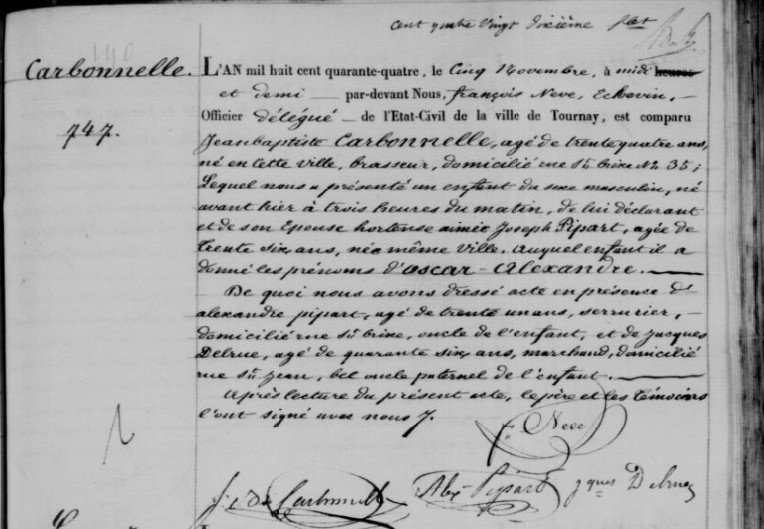 cent quatre vingt dixième f.et
Carbonnelle.
747.
L'AN mil huit cent quarante-quatre, le Cinq Novembre, à midi heures
et demi — par-devant Nous, françois Neve, Echevin, —
Officier délégué — de l'Etat-Civil de la ville de Tournay, est comparu
Jean baptiste Carbonnelle, agé de trente quatre ans,
né en cette ville, brasseur, domicilié rue Ste brixe No 35;
Lequel nous a présenté un enfant du sexe masculin, né
avant hier à trois heures du matin, de lui déclarant
et de son Epouse hortense aimée Joseph Pipart, agée de
trente six ans, née même ville. auquel enfant il a
donné les prénoms d'oscar-Alexandre. —
De quoi nous avons dressé acte en présence d'
alexandre pipart, agé de trente un ans, serrurier, —
domicilié rue St brixe, oncle de l'enfant, et de Jacques
Delrue, agé de quarante six ans, marchand, domicilié
rue St Jean, bel oncle paternel de l'enfant. —
Après lecture du présent acte, le père et les témoins
l'ont signé avec nous J.
f. Neve
J. Bte Carbonnelle Alex Pipart Jques Delrue